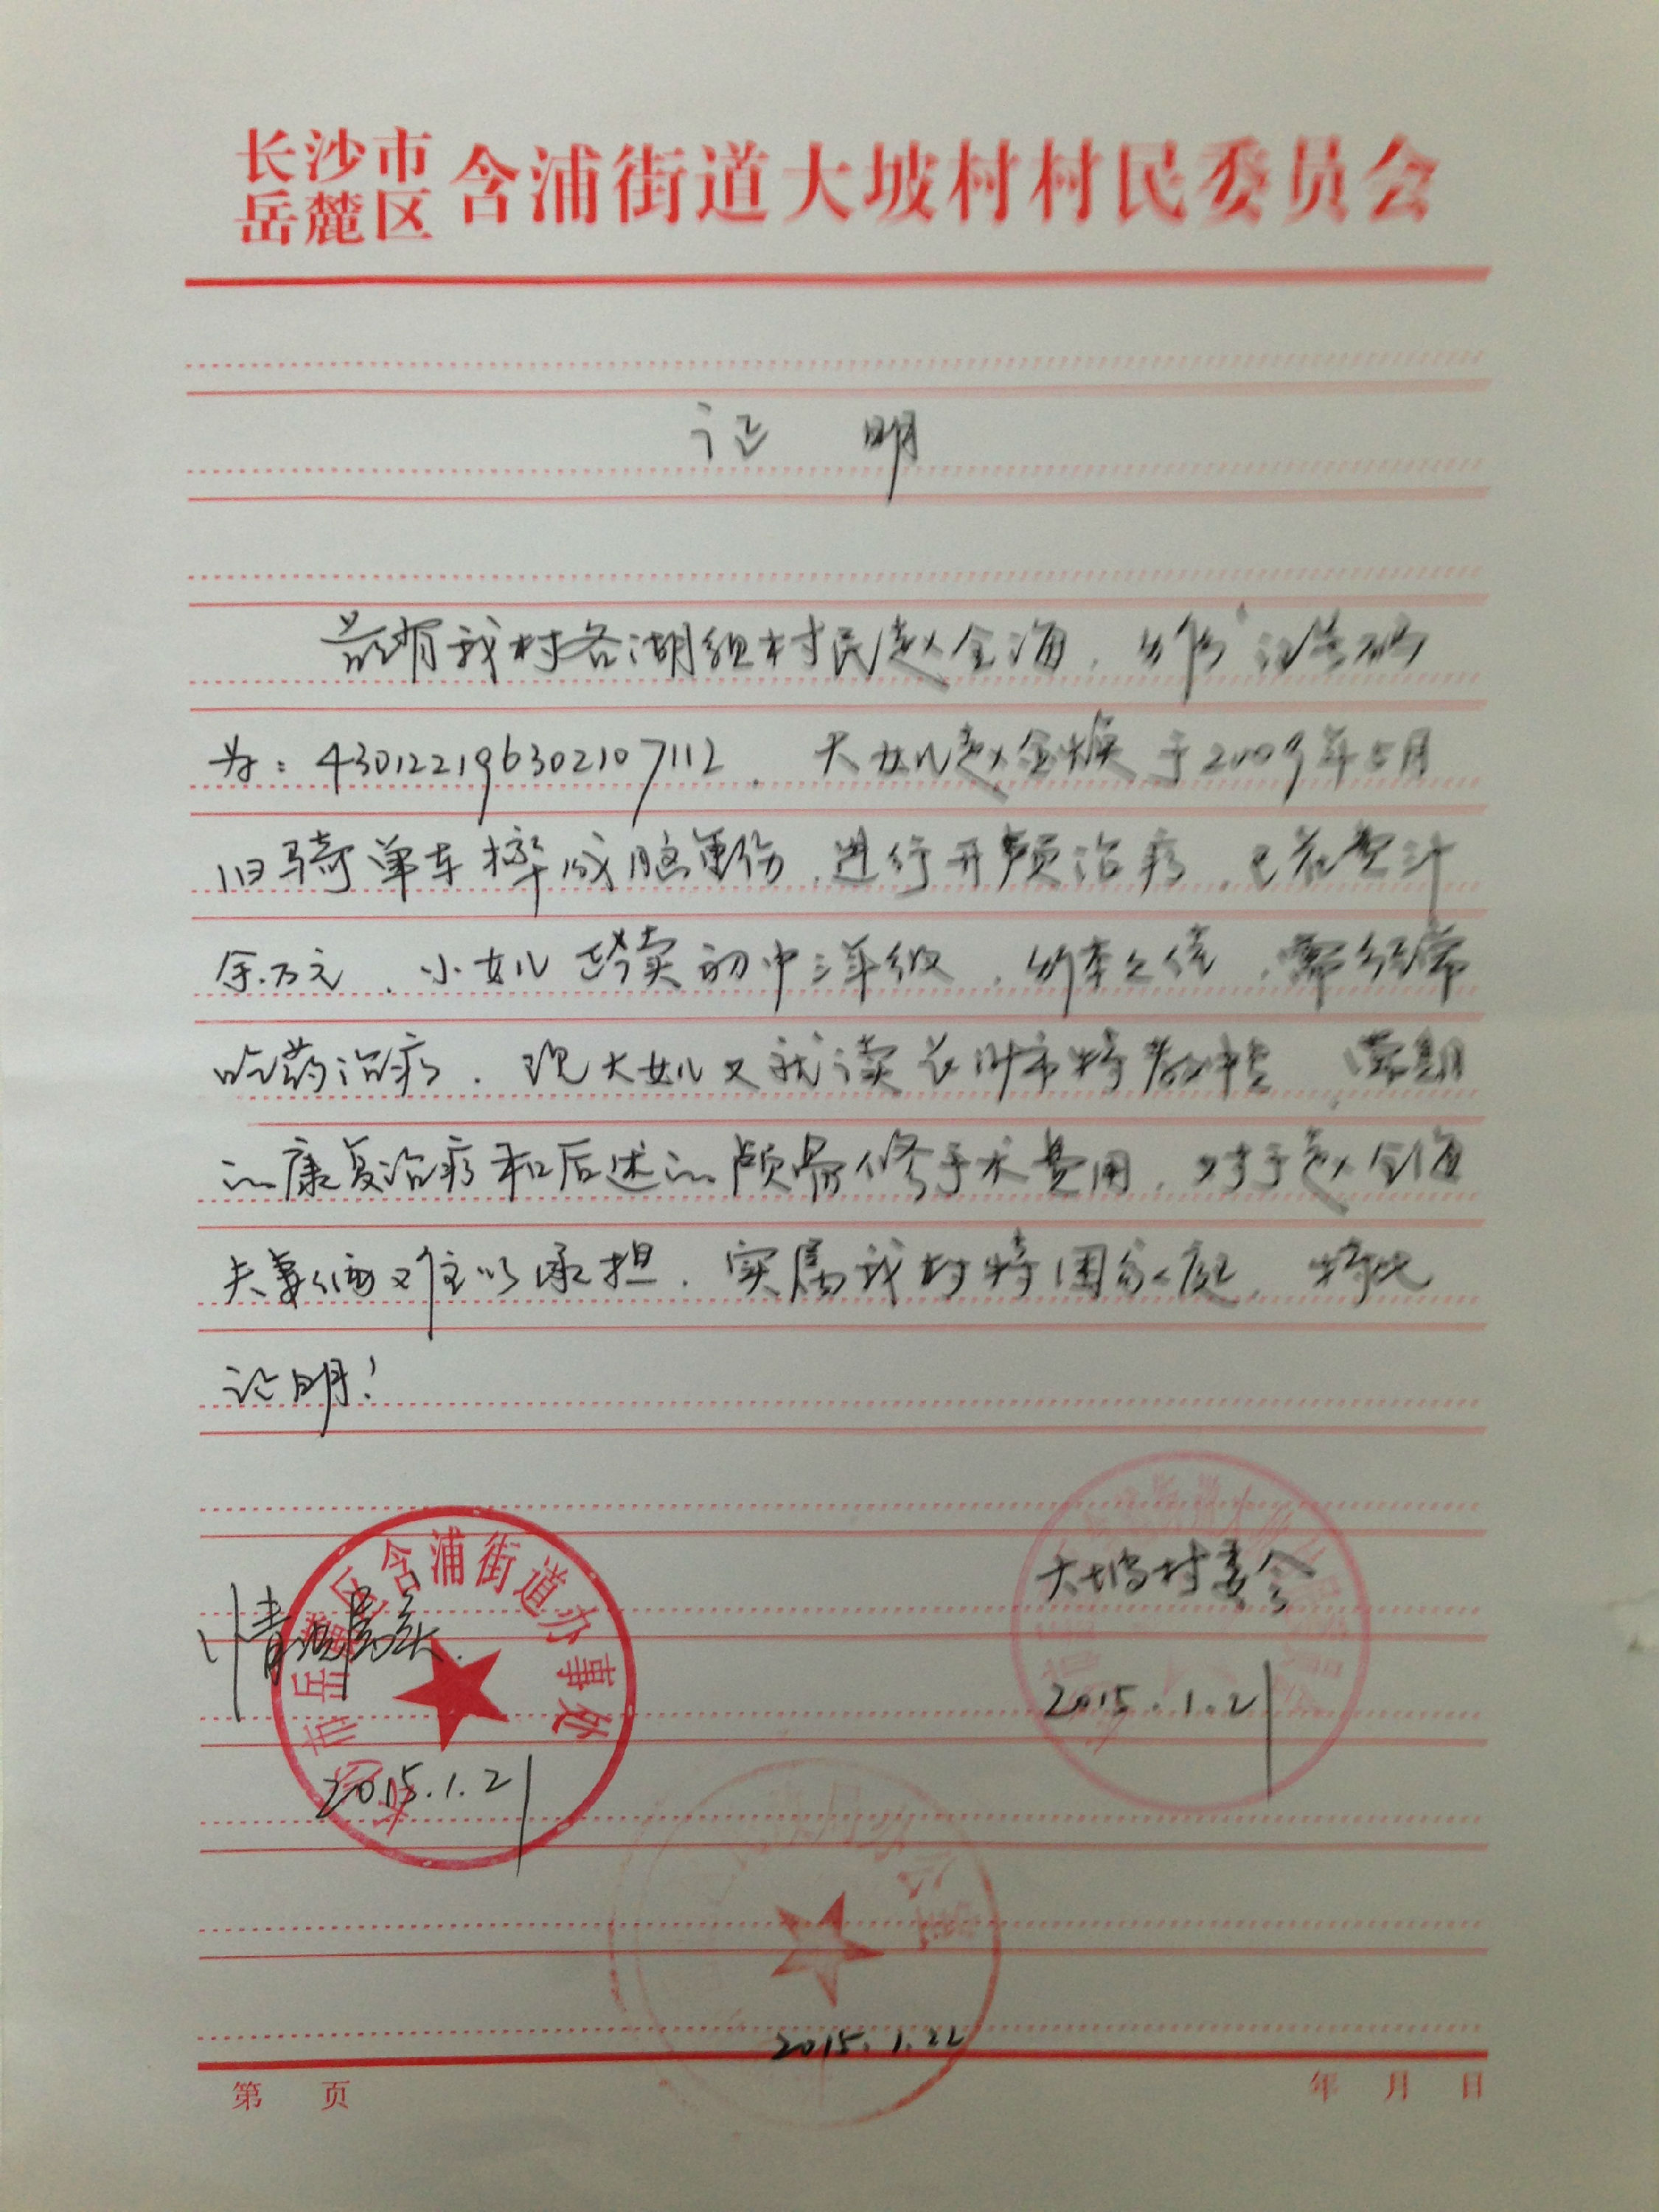 长沙市
岳麓区
含浦街道大坡村村民委员会
证 明
兹有我村各湖组村民赵全海，身份证号码
为：430122196302107112．大女儿赵金焕于2009年5月
1日骑单车摔成脑重伤，进行开颅治疗，已花费计
余万元，小女儿 读初中三年级，需经常
吃药治疗．现大女儿又就读长沙市特教中专
的康复治疗和后述的颅骨修手术费用，对于赵全海
夫妻俩难以承担．实属我村特困家庭，特此
证明！
大坡村委会
2015.1.21
情况属实．
市岳麓区含浦街道办事处
2015.1.21
2015.1.22
第 页
年 月 日